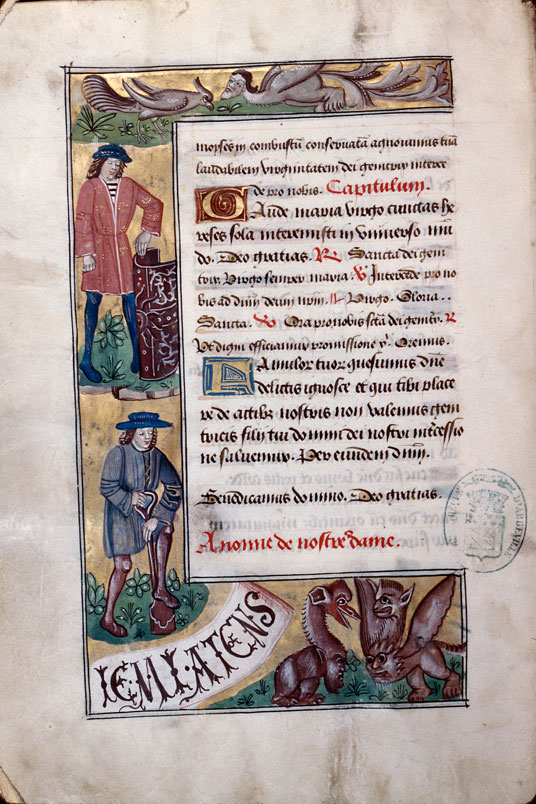 morses in combustum conservatam agnovimus tuā
laudabilem virginitatem dei genitrix interce
de pro nobis. Capitulum.
Gaude maria virgo cunctas he
reses sola interemisti in universo mū
do. Deo gratias. R Sancta dei geni
trix. Virgo semper maria. V Intercede pro no
bis ad dnm deum nrm. Virgo. Gloria..
Sancta. V Ora pro nobis scta dei genitrix. R
Ut digni efficiamur promissione x. Oremus.
Famulor tuor quesumus dne
delictis ignosce et qui tibi place
re de actibz nostris non valemus geni
tricis filii tui domini dei nostri intercessio
ne salvemur. Per eundem
Benedicamus domino. Deo gratias.
A nonne de nostre dame.
IE MI ATENS